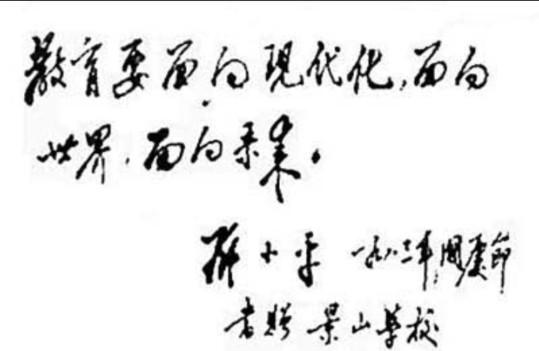 教育要面向现代化，面向
世界，面向未来。
邓小平 一九八三年国庆节
书赠 景山学校